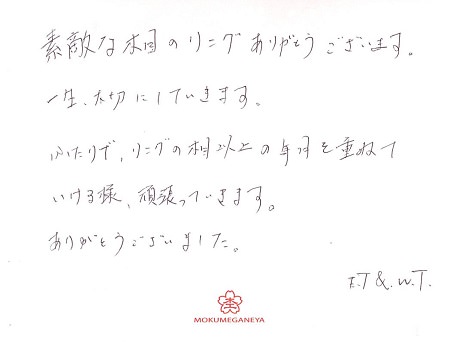 素敵な木目のリングありがとうございます。
一生、大切にしていきます。
ふたりで、リングの木目以上の年月を重ねて
いける様、頑張っていきます。
ありがとうございました。
E.T & W.T.
MOKUMEGANEYA